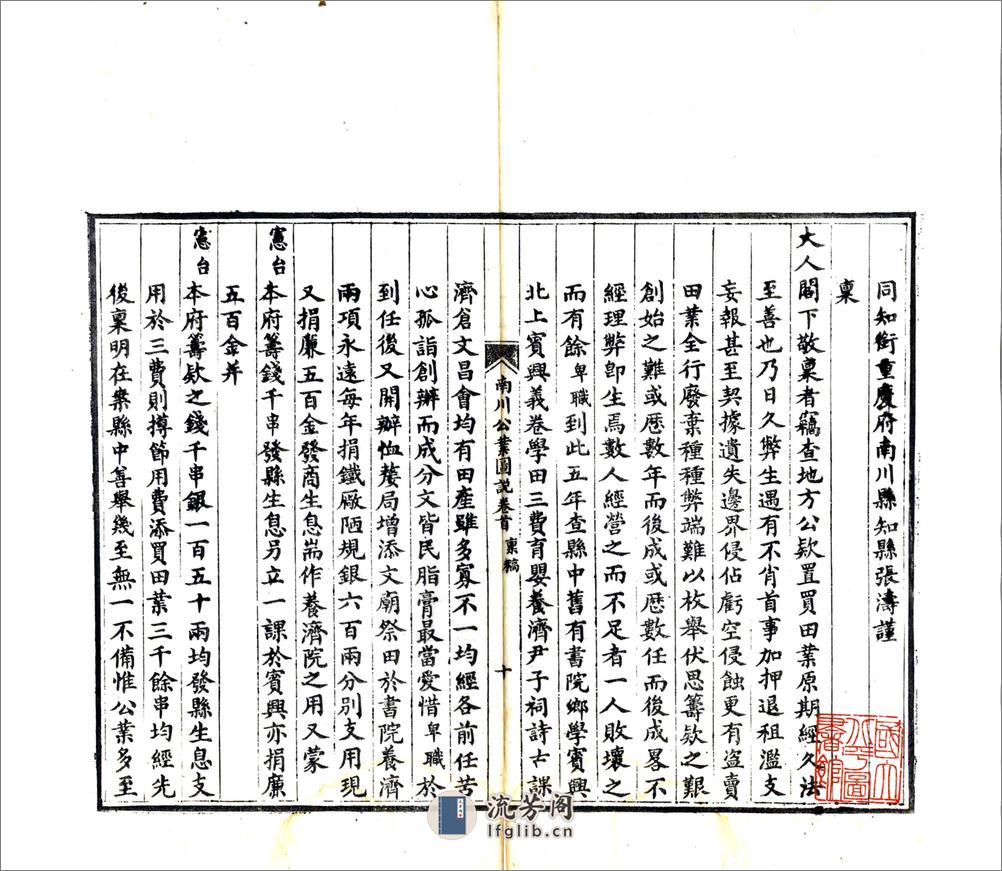 同知銜重慶府南川縣知縣張濤謹
稟
大人閣下敬稟者竊查地方公欵置買田業原期經久法
至善也乃日久弊生遇有不肖首事加押退租濫支
妄報甚至契據遺失邊界侵佔虧空侵蝕更有盜賣
田業全行廢棄種種弊端難以枚舉伏思籌欵之艱
創始之難或歷數年而後成或歷數任而後成畧不
經理弊卽生焉數人經營之而不足者一人敗壞之
而有餘卑職到此五年查縣中舊有書院鄉學賓興
北上賓興義卷學田三費育嬰養濟尹子祠詩古課
南川公業圖說卷首 稟稿 十
濟倉文昌會均有田產雖多寡不一均經各前任苦
心孤詣創辦而成分文皆民脂膏最當愛惜卑職於
到任後又開辦恤嫠局增添文廟祭田於書院養濟
兩項永遠每年捐鐵廠陋規銀六百兩分別支用現
又捐廉五百金發商生息耑作養濟院之用又蒙
憲台本府籌錢千串發縣生息另立一課於賓興亦捐廉
五百金并
憲台本府籌欵之錢千串銀一百五十兩均發縣生息支
用於三費則撙節用費添買田業三千餘串均經先
後稟明在案縣中善舉幾至無一不備惟公業多至
國立北平圖書館
流芳阁
lfglib.cn